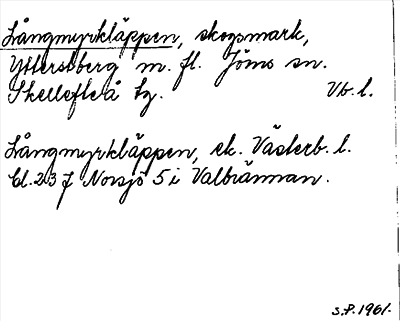 Långmyrkläppen, skogsmark,
Yttersbberg m. fl. Jörns sn.
Skellefteå tg. Vb. l.
Långmyrkläppen, ek. Västerb. l.
Bl. 23 J Norsjö 5 i Valbrännan.
S.P. 1961.